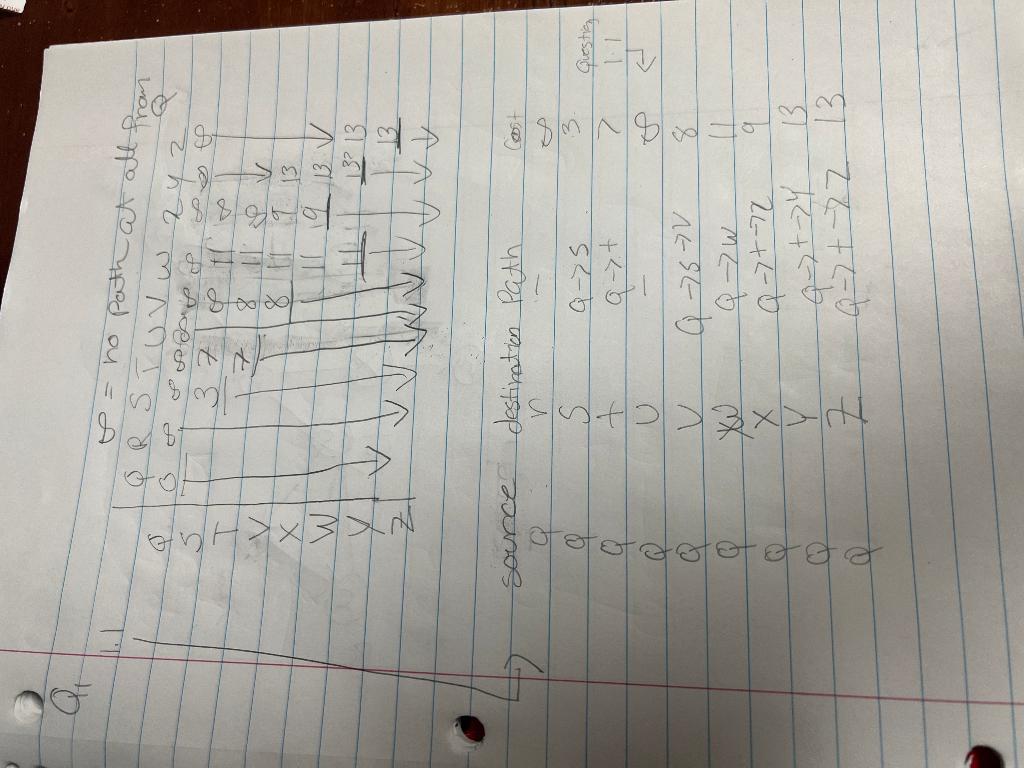 Q1
1.1 ∞ = no path at all from Q
Q R S T U V W X Y Z
Q 0 ∞ ∞ ∞ ∞ ∞ ∞ ∞ ∞ ∞
S 3 7 ∞ 11 ∞
T 7 8 11 ∞
V 8 11 9 13
X 11 9 13
W 11 13
Y 13 13
Z 13
source destination Path Cost
Q r — ∞
Q S Q->S 3
Q t Q->t 7
Question 1.1
Q U — ∞
Q V Q->S->V 8
Q W Q->W 11
Q X Q->t->x 9
Q Y Q->t->Y 13
Q Z Q->t->Z 13